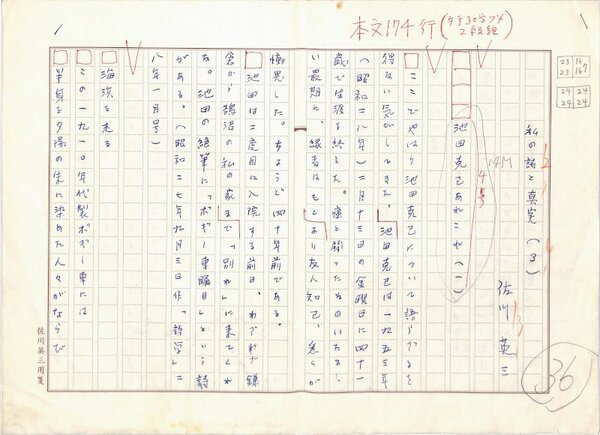 本文174行(タテ30字ヅメ2段組)
私の詩と真実(3)
佐川英三
14M
4号
池田克己あれこれ(一)
ここでやはり池田克己について語らざるを
得ない気がしてきた。池田克己は一九五三年
(昭和二八年)二月十三日の金曜日に四十一
歳で生涯を終えた。癌と闘ったそのいたまし
い最期に、縁者はもとより友人知己、悉くが
慟哭した。ちょうど四十年前である。
池田は二度目に入院する前日、わざわざ鎌
倉から鵠沼の私の家まで「別れ」に来てくれ
た。池田の絶筆に「ボギー車曜日」という詩
がある。(昭和二七年九月三日作「詩学」二
八年一月号)
海浜を走る
この一九一〇年代製ボギー車には
半身を夕陽の朱に染めた人々がならび
佐川英三用箋
36
23 16
23 16
24 24
24 24